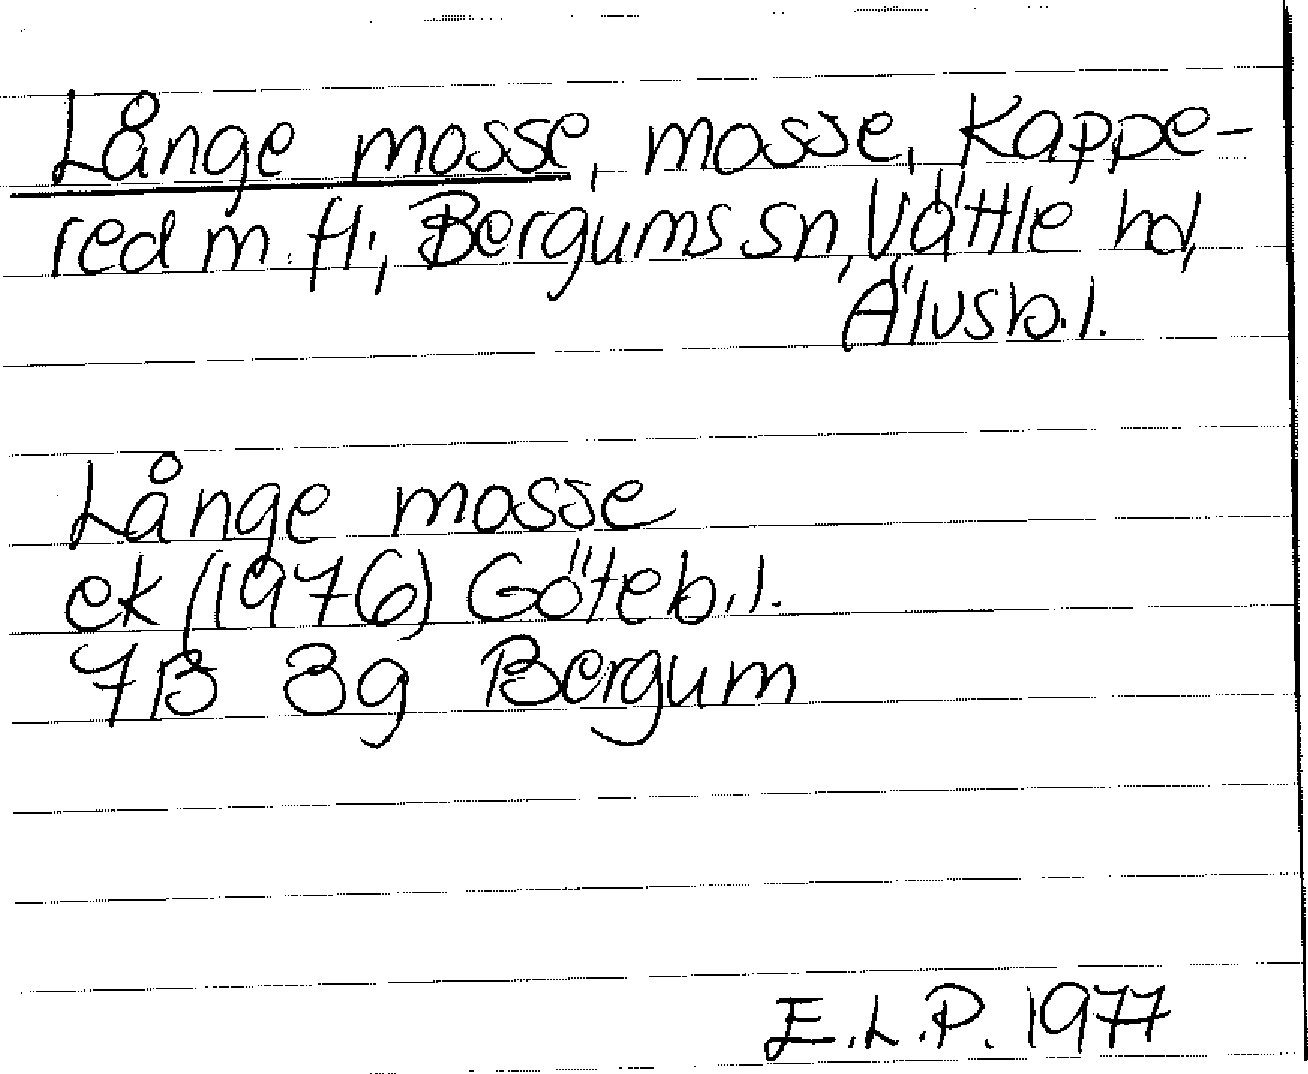 Långe mosse, mosse, Kappe-
red m. fl., Bergums sn, Vättle hd,
Älvsb. l.
Långe mosse
ek (1976) Göteb. l.
7B 3g Bergum
E.L.P. 1977